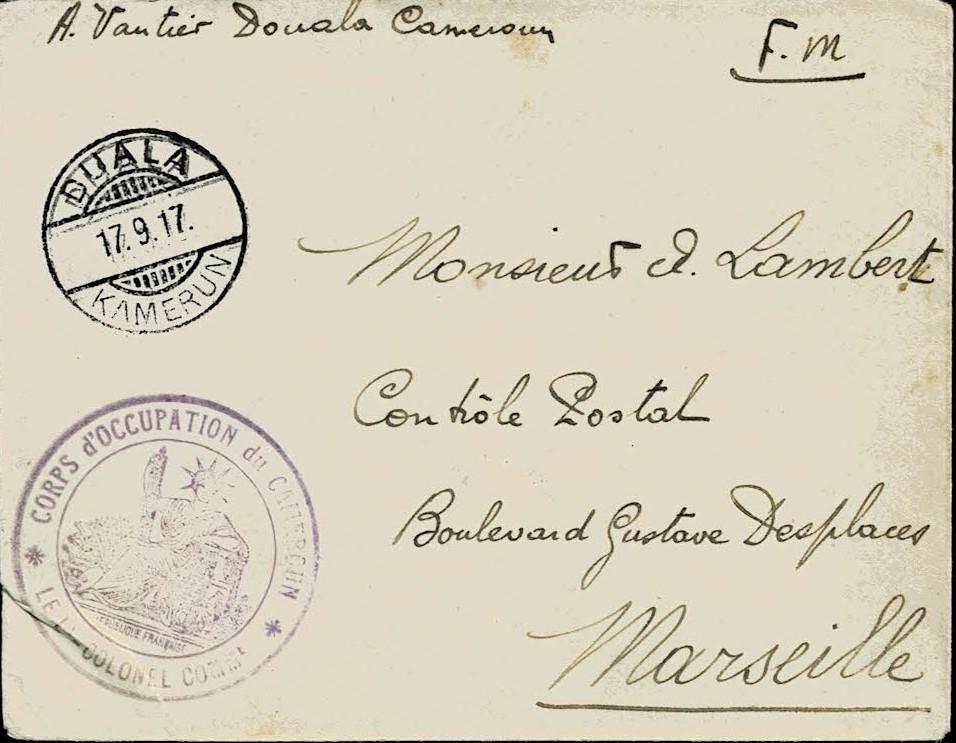 A. Vautier Douala Cameroun
F. M
DUALA
17.9.17.
KAMERUN
Monsieur A. Lambert
Contrôle Postal
Boulevard Gustave Desplaces
Marseille
CORPS d'OCCUPATION du CAMEROUN
RÉPUBLIQUE FRANÇAISE
LE Lt COLONEL COMM